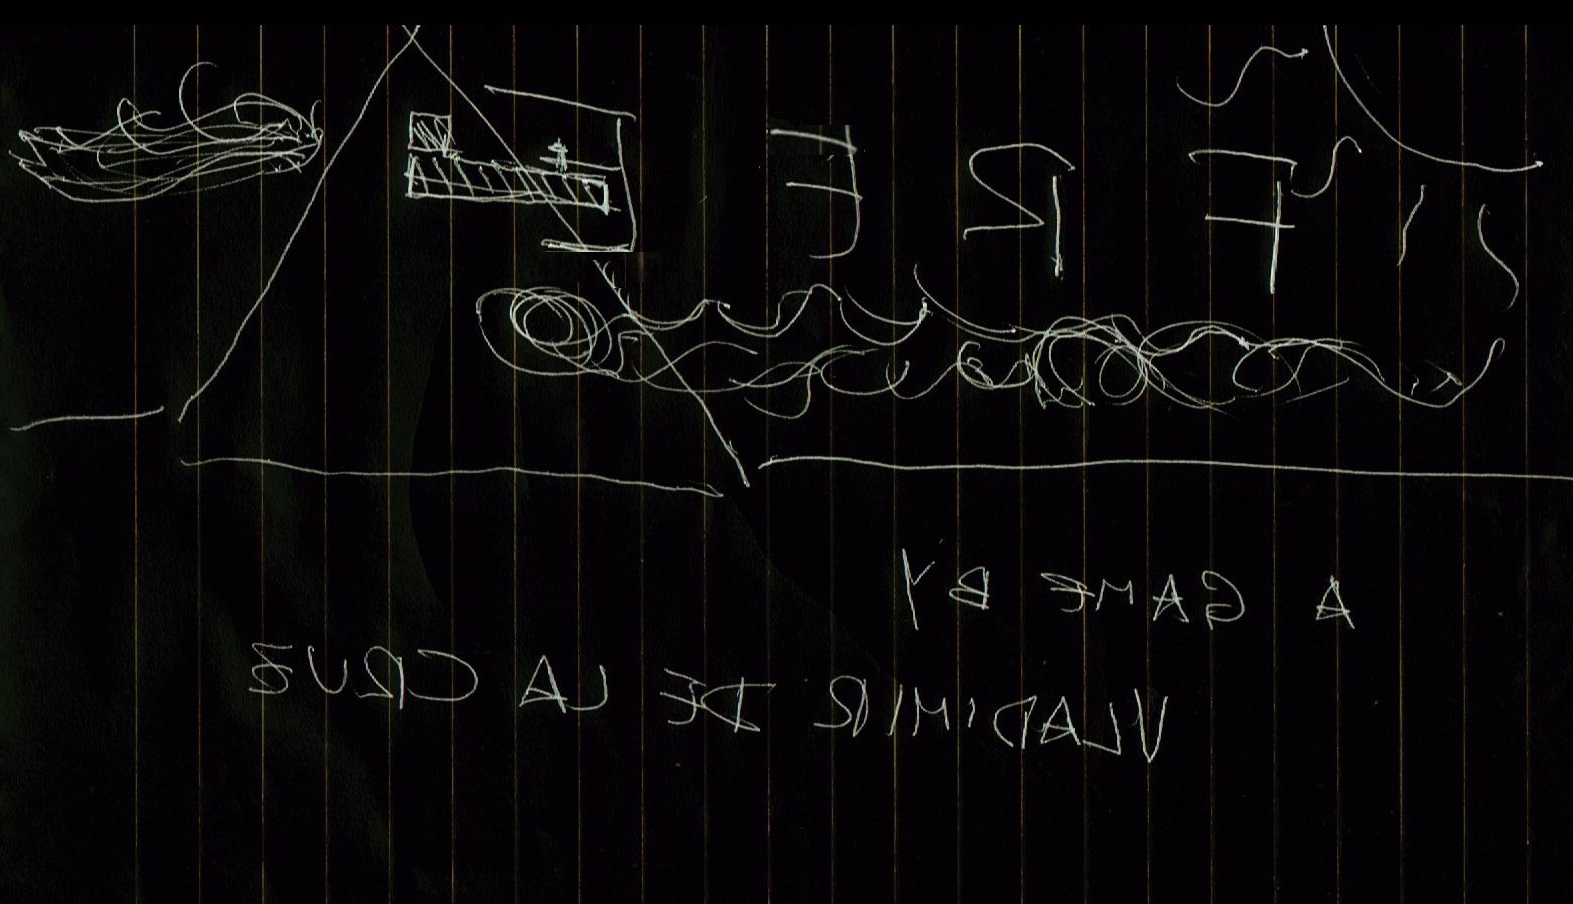 F R E E
A GAME BY
VLADIMIR DE LA CRUZ